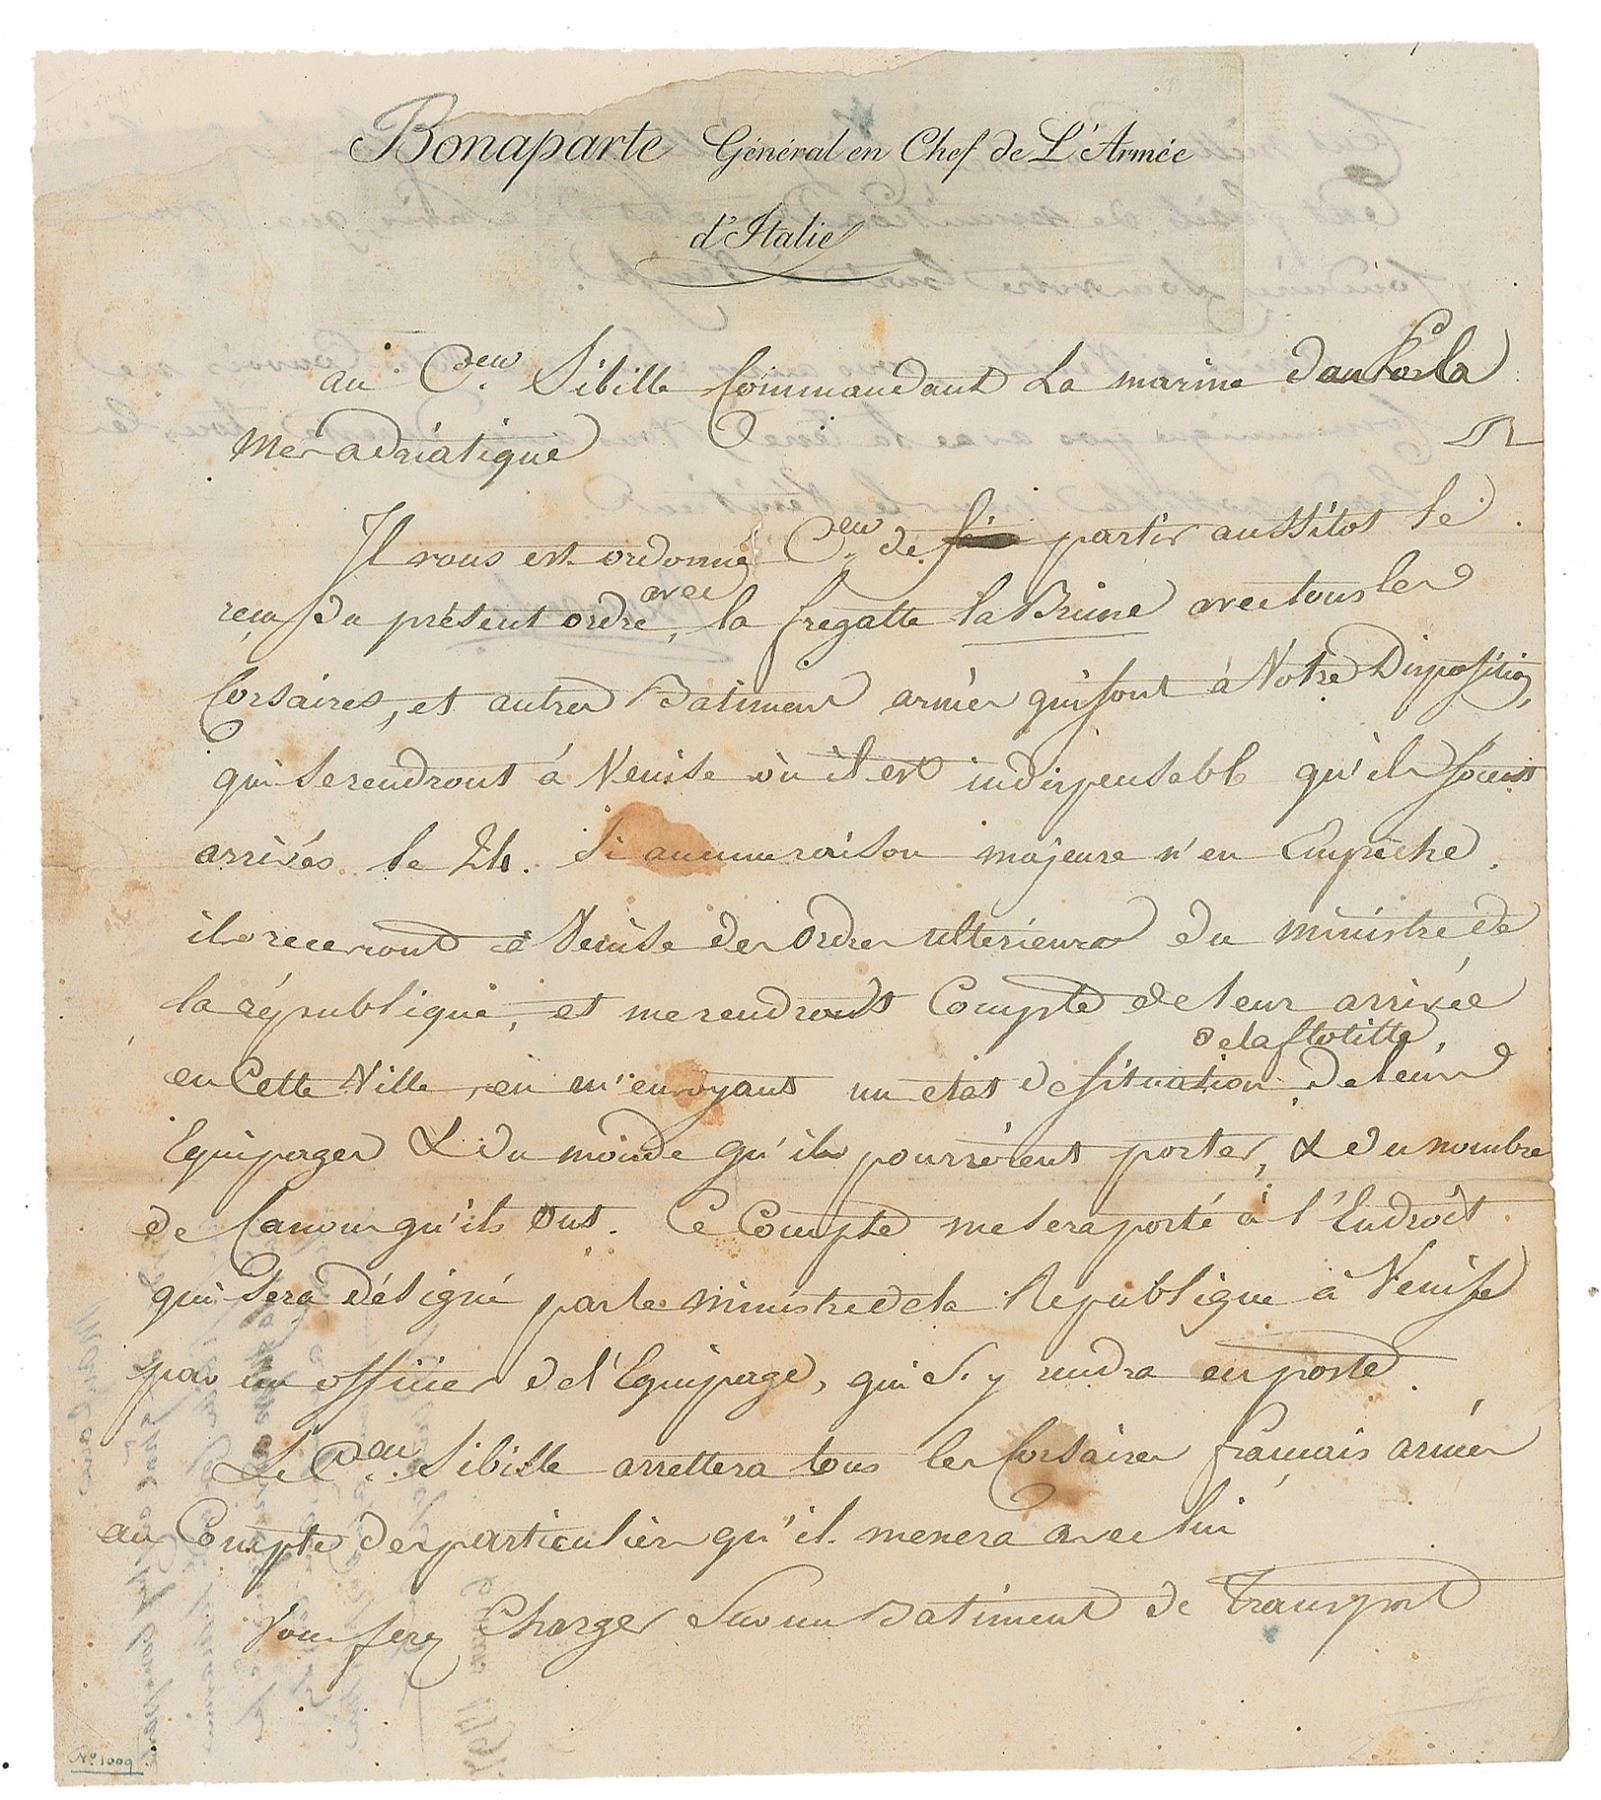 Bonaparte Général en Chef de L'Armée
d'Italie
au C.en Sibille Commandant La marine dans la
mer adriatique
Il vous est ordonné C.en de partir aussitot le
avec
reçu du présent ordre, la fregatte la Brune avec tous les
Corsaires, et autres Batimens armés qui sont à Votre Disposition,
qui se rendront à Venise où il est indispensable qu'ils soient
arrivés le 24. Si aucune raison majeure n'en Empêche.
ils recevront à Venise des ordres ulterieures du ministre de
la république, et me rendront Compte de leur arrivée
de la flotille,
en Cette Ville, en m'envoyant un etat de situation, de leurs
Equipages & du monde qu'ils pourroient porter, & du nombre
de Canons qu'ils ont. Ce Compte me sera porté à l'Endroit
qui sera désigné par le ministre de la Republique à Venise
par un officier de l'Equipage, qui s'y rendra en poste.
Le C.en Sibille arrettera tous les Corsaires français armés
au Compte des particuliers qu'il menera avec lui
Vous ferez Charger Sur un Batiment de Transport
N.o 1009